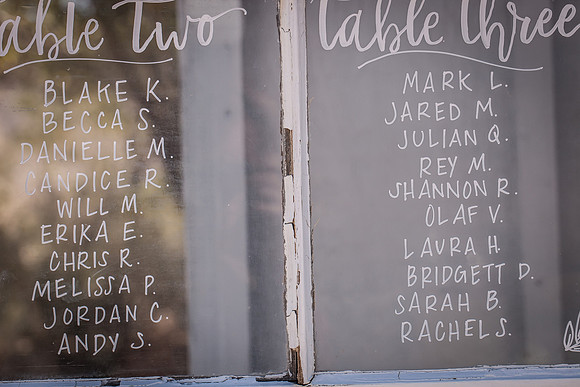 Table Two
BLAKE K.
BECCA S.
DANIELLE M.
CANDICE R.
WILL M.
ERIKA E.
CHRIS R.
MELISSA P.
JORDAN C.
ANDY S.
Table Three
MARK L.
JARED M.
JULIAN Q.
REY M.
SHANNON R.
OLAF V.
LAURA H.
BRIDGETT D.
SARAH B.
RACHEL S.